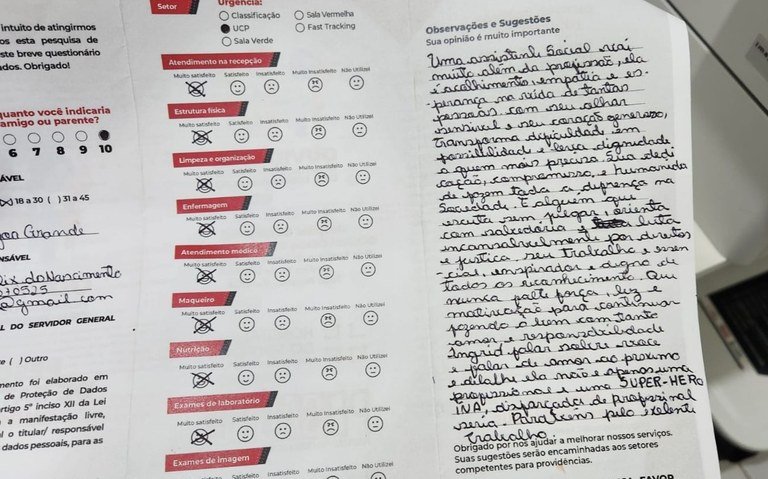 intuito de atingirmos
os esta pesquisa de
ste breve questionário
dos. Obrigado!
quanto você indicaria
amigo ou parente?
6 7 8 9 10
ÁVEL
18 a 30 ( ) 31 a 45
Grande
NSÁVEL
lix do Nascimento
070525
@gmail.com
L DO SERVIDOR GERAL
e ( ) Outro
mento foi elaborado em
de Proteção de Dados
rtigo 5º inciso XII da Lei
a manifestação livre,
l o titular/ responsável
dados pessoais, para as
Setor
Urgência:
Classificação Sala Vermelha
UCP Fast Tracking
Sala Verde
Atendimento na recepção
Muito satisfeito Satisfeito Insatisfeito Muito Insatisfeito Não Utilizei
Estrutura física
Muito satisfeito Satisfeito Insatisfeito Muito Insatisfeito Não Utilizei
Limpeza e organização
Muito satisfeito Satisfeito Insatisfeito Muito Insatisfeito Não Utilizei
Enfermagem
Muito satisfeito Satisfeito Insatisfeito Muito Insatisfeito Não Utilizei
Atendimento médico
Muito satisfeito Satisfeito Insatisfeito Muito Insatisfeito Não Utilizei
Maqueiro
Muito satisfeito Satisfeito Insatisfeito Muito Insatisfeito Não Utilizei
Nutrição
Muito satisfeito Satisfeito Insatisfeito Muito Insatisfeito Não Utilizei
Exames de laboratório
Muito satisfeito Satisfeito Insatisfeito Muito Insatisfeito Não Utilizei
Exames de imagem
Muito satisfeito Satisfeito Insatisfeito Muito Insatisfeito Não Utilizei
Observações e Sugestões
Sua opinião é muito importante
Uma assistente Social vai
muito além da profissão, ela
é acolhimento, empatia e es-
perança na vida de tantas
pessoas com seu olhar
sensivel e seu coração generoso,
transforma dificuldade em
possibilidade e leva dignidade
a quem mais precisa. Sua dedi
cação, compromisso, e humanida
de fazem toda a diferença na
Sociedade. É alguem que
escuta sem julgar, orienta
com sabedoria e luta
incansalvelmente por direitos
e justiça, seu trabalho e essen
cial, inspirador e digno de
todos os reconhecimento. Que
nunca falte força, luz e
motivação para continuar
fazendo o bem com tanto
amor e responsabilidade
Ingrid falar sobre voce
e falar de amor ao proximo
e dilalhe ela não e apenas uma
profissional e uma SUPER-HERO
INA, disfarçada de profissinal
seria. Parabens pelo exelente
trabalho.
Obrigado por nos ajudar a melhorar nossos serviços.
Suas sugestões serão encaminhadas aos setores
competentes para providências.
FAVOR